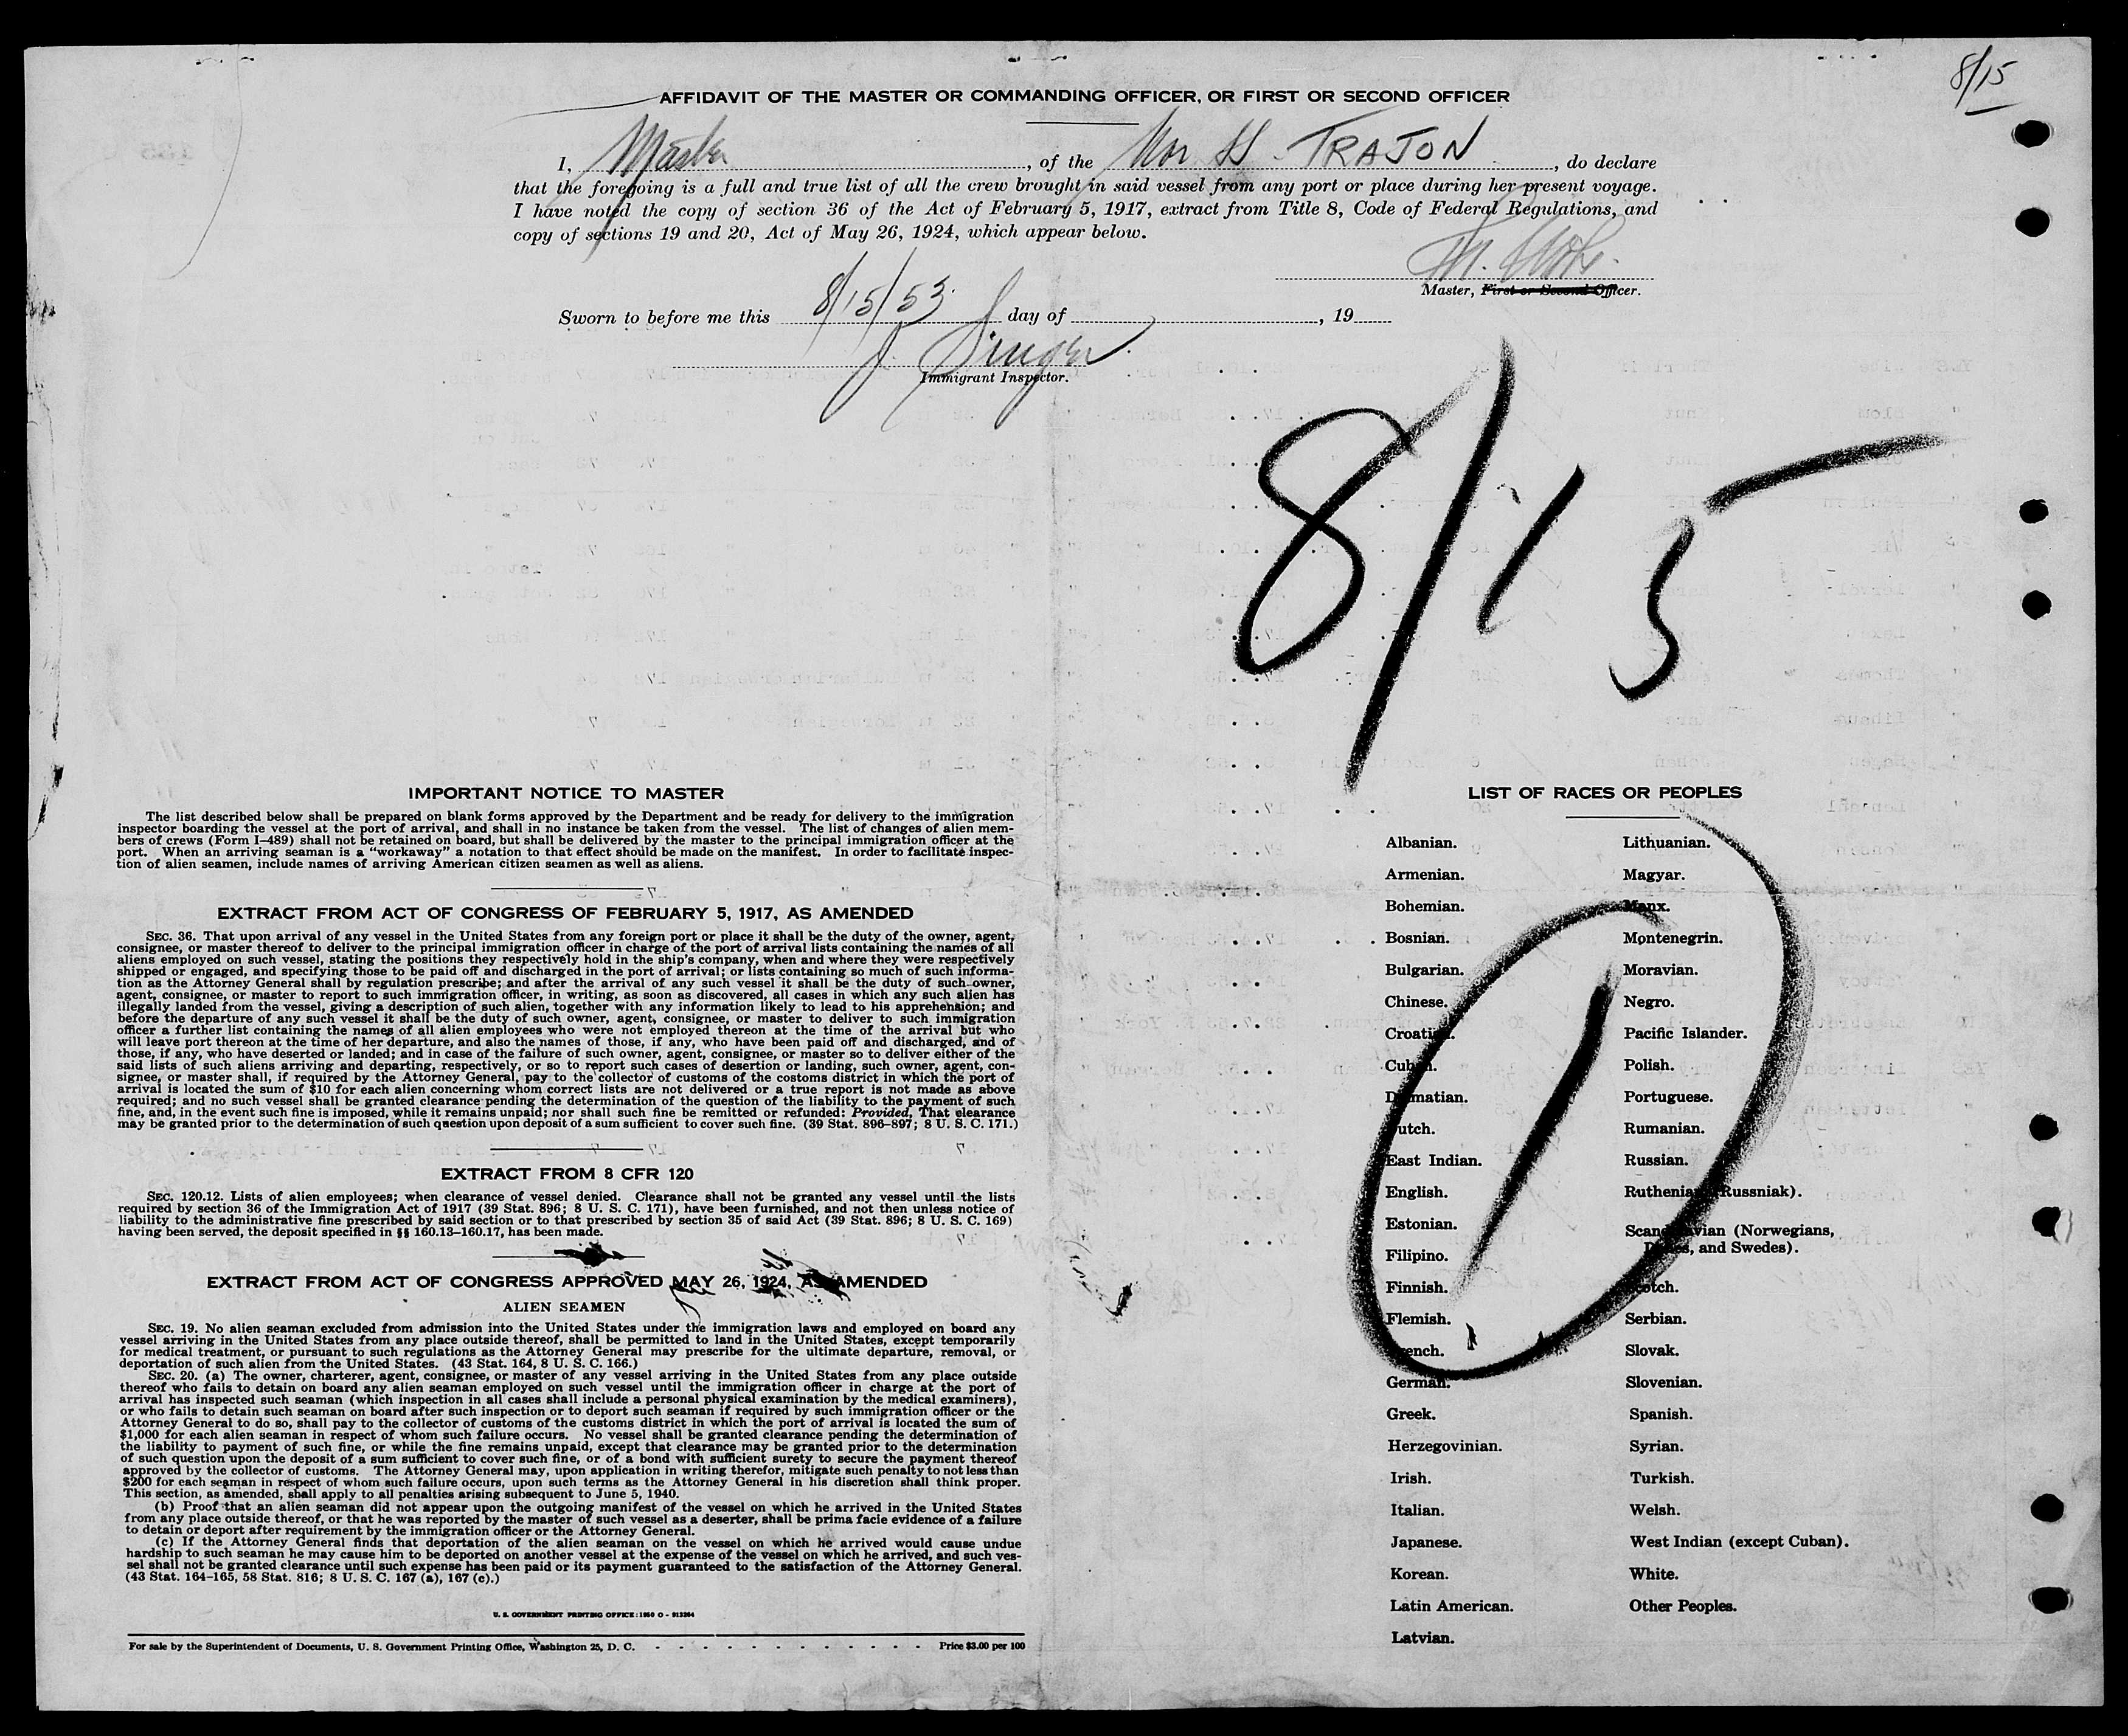 8/15
AFFIDAVIT OF THE MASTER OR COMMANDING OFFICER, OR FIRST OR SECOND OFFICER
I, Master, of the Nor SS. TRAJON, do declare
that the foregoing is a full and true list of all the crew brought in said vessel from any port or place during her present voyage.
I have noted the copy of section 36 of the Act of February 5, 1917, extract from Title 8, Code of Federal Regulations, and
copy of sections 19 and 20, Act of May 26, 1924, which appear below.
Master, First or Second Officer.
Sworn to before me this 8/15/53 day of , 19
J. Singer
Immigrant Inspector.
8/15
IMPORTANT NOTICE TO MASTER
The list described below shall be prepared on blank forms approved by the Department and be ready for delivery to the immigration
inspector boarding the vessel at the port of arrival, and shall in no instance be taken from the vessel. The list of changes of alien mem-
bers of crews (Form I–489) shall not be retained on board, but shall be delivered by the master to the principal immigration officer at the
port. When an arriving seaman is a “workaway” a notation to that effect should be made on the manifest. In order to facilitate inspec-
tion of alien seamen, include names of arriving American citizen seamen as well as aliens.
EXTRACT FROM ACT OF CONGRESS OF FEBRUARY 5, 1917, AS AMENDED
SEC. 36. That upon arrival of any vessel in the United States from any foreign port or place it shall be the duty of the owner, agent,
consignee, or master thereof to deliver to the principal immigration officer in charge of the port of arrival lists containing the names of all
aliens employed on such vessel, stating the positions they respectively hold in the ship's company, when and where they were respectively
shipped or engaged, and specifying those to be paid off and discharged in the port of arrival; or lists containing so much of such informa-
tion as the Attorney General shall by regulation prescribe; and after the arrival of any such vessel it shall be the duty of such owner,
agent, consignee, or master to report to such immigration officer, in writing, as soon as discovered, all cases in which any such alien has
illegally landed from the vessel, giving a description of such alien, together with any information likely to lead to his apprehension; and
before the departure of any such vessel it shall be the duty of such owner, agent, consignee, or master to deliver to such immigration
officer a further list containing the names of all alien employees who were not employed thereon at the time of the arrival but who
will leave port thereon at the time of her departure, and also the names of those, if any, who have been paid off and discharged, and of
those, if any, who have deserted or landed; and in case of the failure of such owner, agent, consignee, or master so to deliver either of the
said lists of such aliens arriving and departing, respectively, or so to report such cases of desertion or landing, such owner, agent, con-
signee, or master shall, if required by the Attorney General, pay to the collector of customs of the costoms district in which the port of
arrival is located the sum of $10 for each alien concerning whom correct lists are not delivered or a true report is not made as above
required; and no such vessel shall be granted clearance pending the determination of the question of the liability to the payment of such
fine, and, in the event such fine is imposed, while it remains unpaid; nor shall such fine be remitted or refunded: Provided, That clearance
may be granted prior to the determination of such question upon deposit of a sum sufficient to cover such fine. (39 Stat. 896–897; 8 U. S. C. 171.)
EXTRACT FROM 8 CFR 120
SEC. 120.12. Lists of alien employees; when clearance of vessel denied. Clearance shall not be granted any vessel until the lists
required by section 36 of the Immigration Act of 1917 (39 Stat. 896; 8 U. S. C. 171), have been furnished, and not then unless notice of
liability to the administrative fine prescribed by said section or to that prescribed by section 35 of said Act (39 Stat. 896; 8 U. S. C. 169)
having been served, the deposit specified in §§ 160.13–160.17, has been made.
EXTRACT FROM ACT OF CONGRESS APPROVED MAY 26, 1924, AS AMENDED
ALIEN SEAMEN
SEC. 19. No alien seaman excluded from admission into the United States under the immigration laws and employed on board any
vessel arriving in the United States from any place outside thereof, shall be permitted to land in the United States, except temporarily
for medical treatment, or pursuant to such regulations as the Attorney General may prescribe for the ultimate departure, removal, or
deportation of such alien from the United States. (43 Stat. 164, 8 U. S. C. 166.)
SEC. 20. (a) The owner, charterer, agent, consignee, or master of any vessel arriving in the United States from any place outside
thereof who fails to detain on board any alien seaman employed on such vessel until the immigration officer in charge at the port of
arrival has inspected such seaman (which inspection in all cases shall include a personal physical examination by the medical examiners),
or who fails to detain such seaman on board after such inspection or to deport such seaman if required by such immigration officer or the
Attorney General to do so, shall pay to the collector of customs of the customs district in which the port of arrival is located the sum of
$1,000 for each alien seaman in respect of whom such failure occurs. No vessel shall be granted clearance pending the determination of
the liability to payment of such fine, or while the fine remains unpaid, except that clearance may be granted prior to the determination
of such question upon the deposit of a sum sufficient to cover such fine, or of a bond with sufficient surety to secure the payment thereof
approved by the collector of customs. The Attorney General may, upon application in writing therefor, mitigate such penalty to not less than
$200 for each seaman in respect of whom such failure occurs, upon such terms as the Attorney General in his discretion shall think proper.
This section, as amended, shall apply to all penalties arising subsequent to June 5, 1940.
(b) Proof that an alien seaman did not appear upon the outgoing manifest of the vessel on which he arrived in the United States
from any place outside thereof, or that he was reported by the master of such vessel as a deserter, shall be prima facie evidence of a failure
to detain or deport after requirement by the immigration officer or the Attorney General.
(c) If the Attorney General finds that deportation of the alien seaman on the vessel on which he arrived would cause undue
hardship to such seaman he may cause him to be deported on another vessel at the expense of the vessel on which he arrived, and such ves-
sel shall not be granted clearance until such expense has been paid or its payment guaranteed to the satisfaction of the Attorney General.
(43 Stat. 164–165, 58 Stat. 816; 8 U. S. C. 167 (a), 167 (c).)
U. S. GOVERNMENT PRINTING OFFICE : 1950 O - 913264
For sale by the Superintendent of Documents, U. S. Government Printing Office, Washington 25, D. C. - - - - - - - - - - - - Price $3.00 per 100
LIST OF RACES OR PEOPLES
Albanian.
Armenian.
Bohemian.
Bosnian.
Bulgarian.
Chinese.
Croatian.
Cuban.
Dalmatian.
Dutch.
East Indian.
English.
Estonian.
Filipino.
Finnish.
Flemish.
French.
German.
Greek.
Herzegovinian.
Irish.
Italian.
Japanese.
Korean.
Latin American.
Latvian.
Lithuanian.
Magyar.
Manx.
Montenegrin.
Moravian.
Negro.
Pacific Islander.
Polish.
Portuguese.
Rumanian.
Russian.
Ruthenian (Russniak).
Scandinavian (Norwegians,
Danes, and Swedes).
Scotch.
Serbian.
Slovak.
Slovenian.
Spanish.
Syrian.
Turkish.
Welsh.
West Indian (except Cuban).
White.
Other Peoples.
1